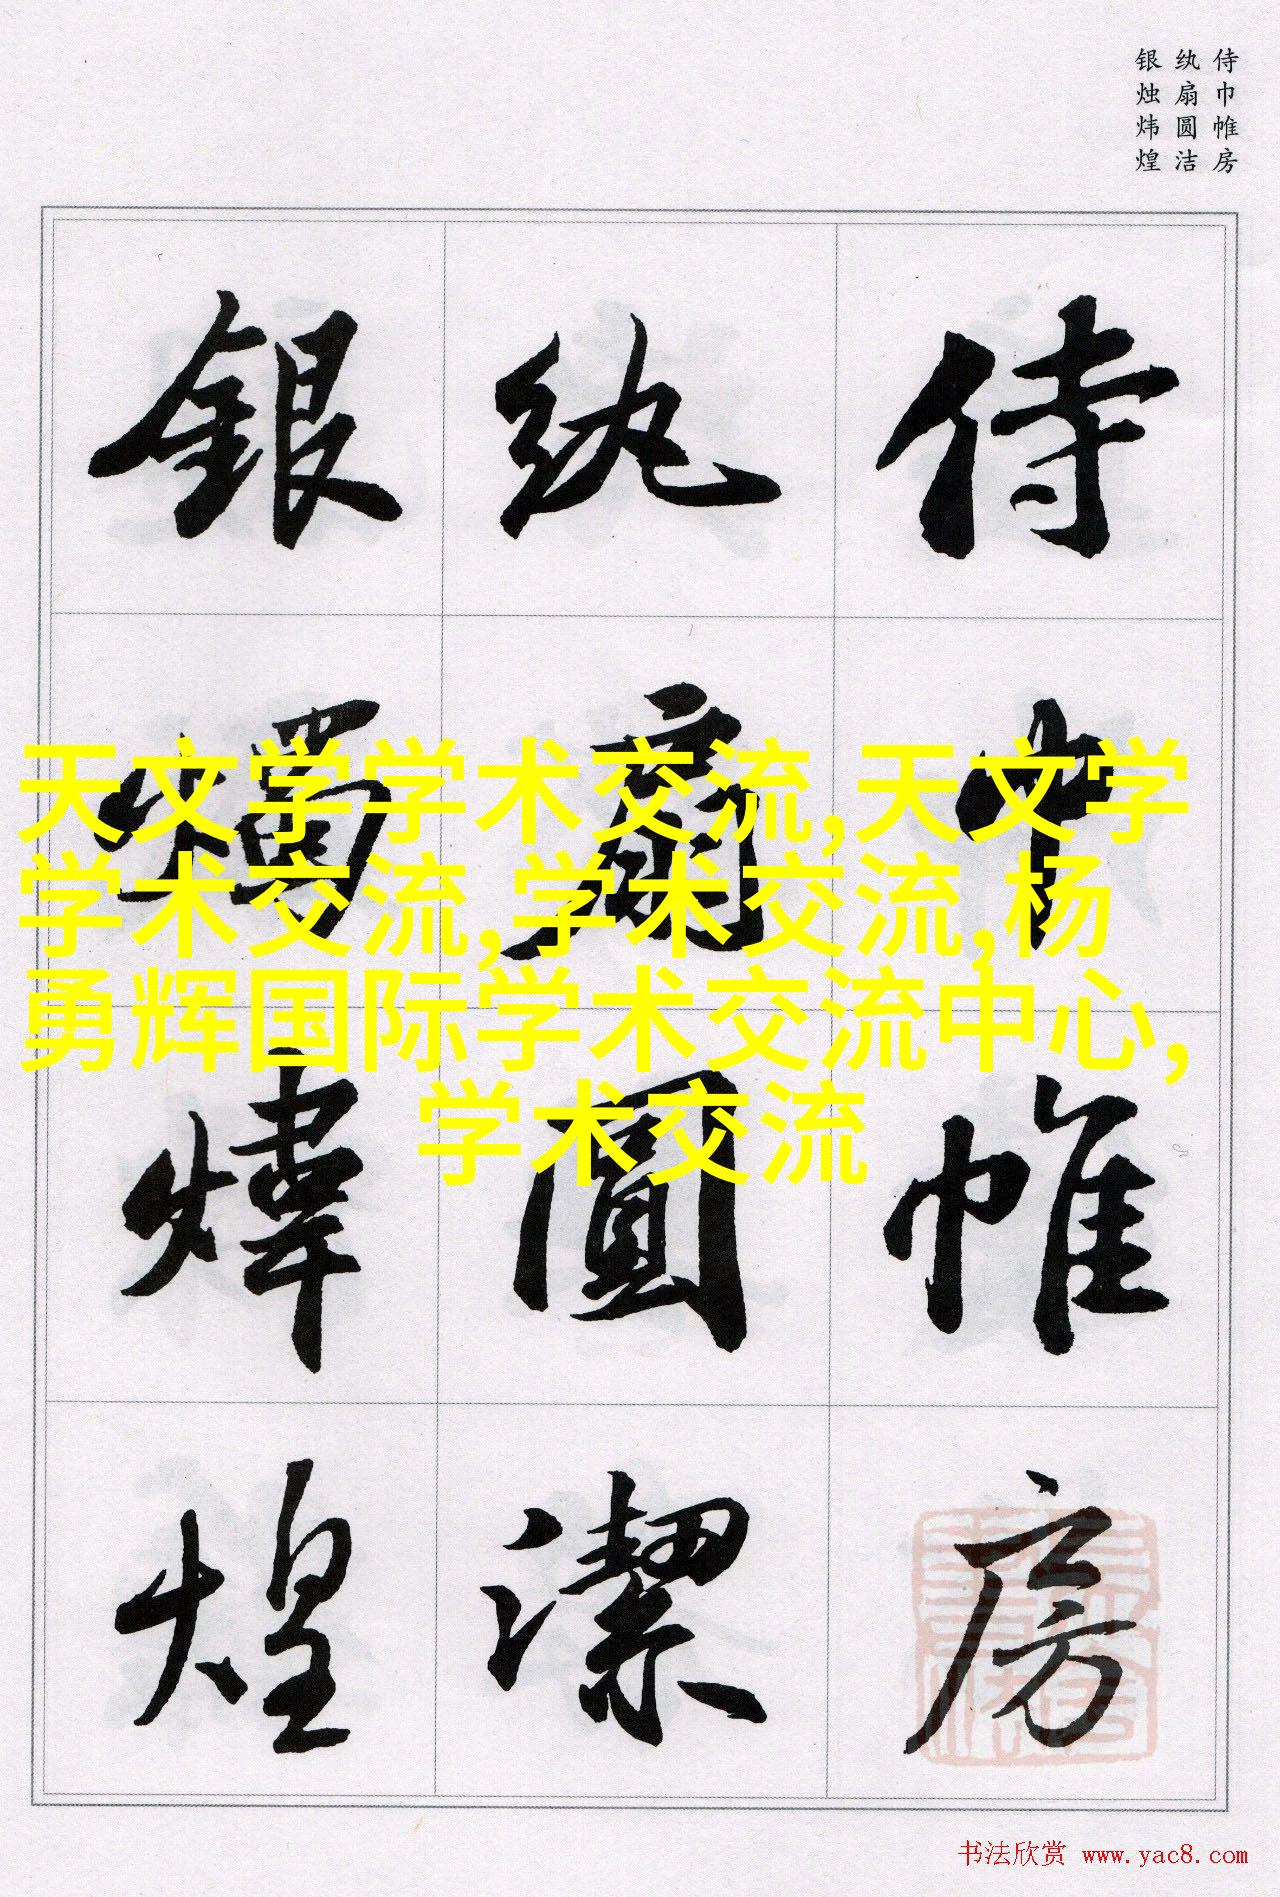 侍巾帷房
纨扇圆洁
银烛炜煌
侍巾帷房
纨扇圓潔
银燭煒煌
天文学学术交流,天文学
学术交流,学术交流,杨
勇辉国际学术交流中心,
学术交流
书法欣赏 www.yac8.com